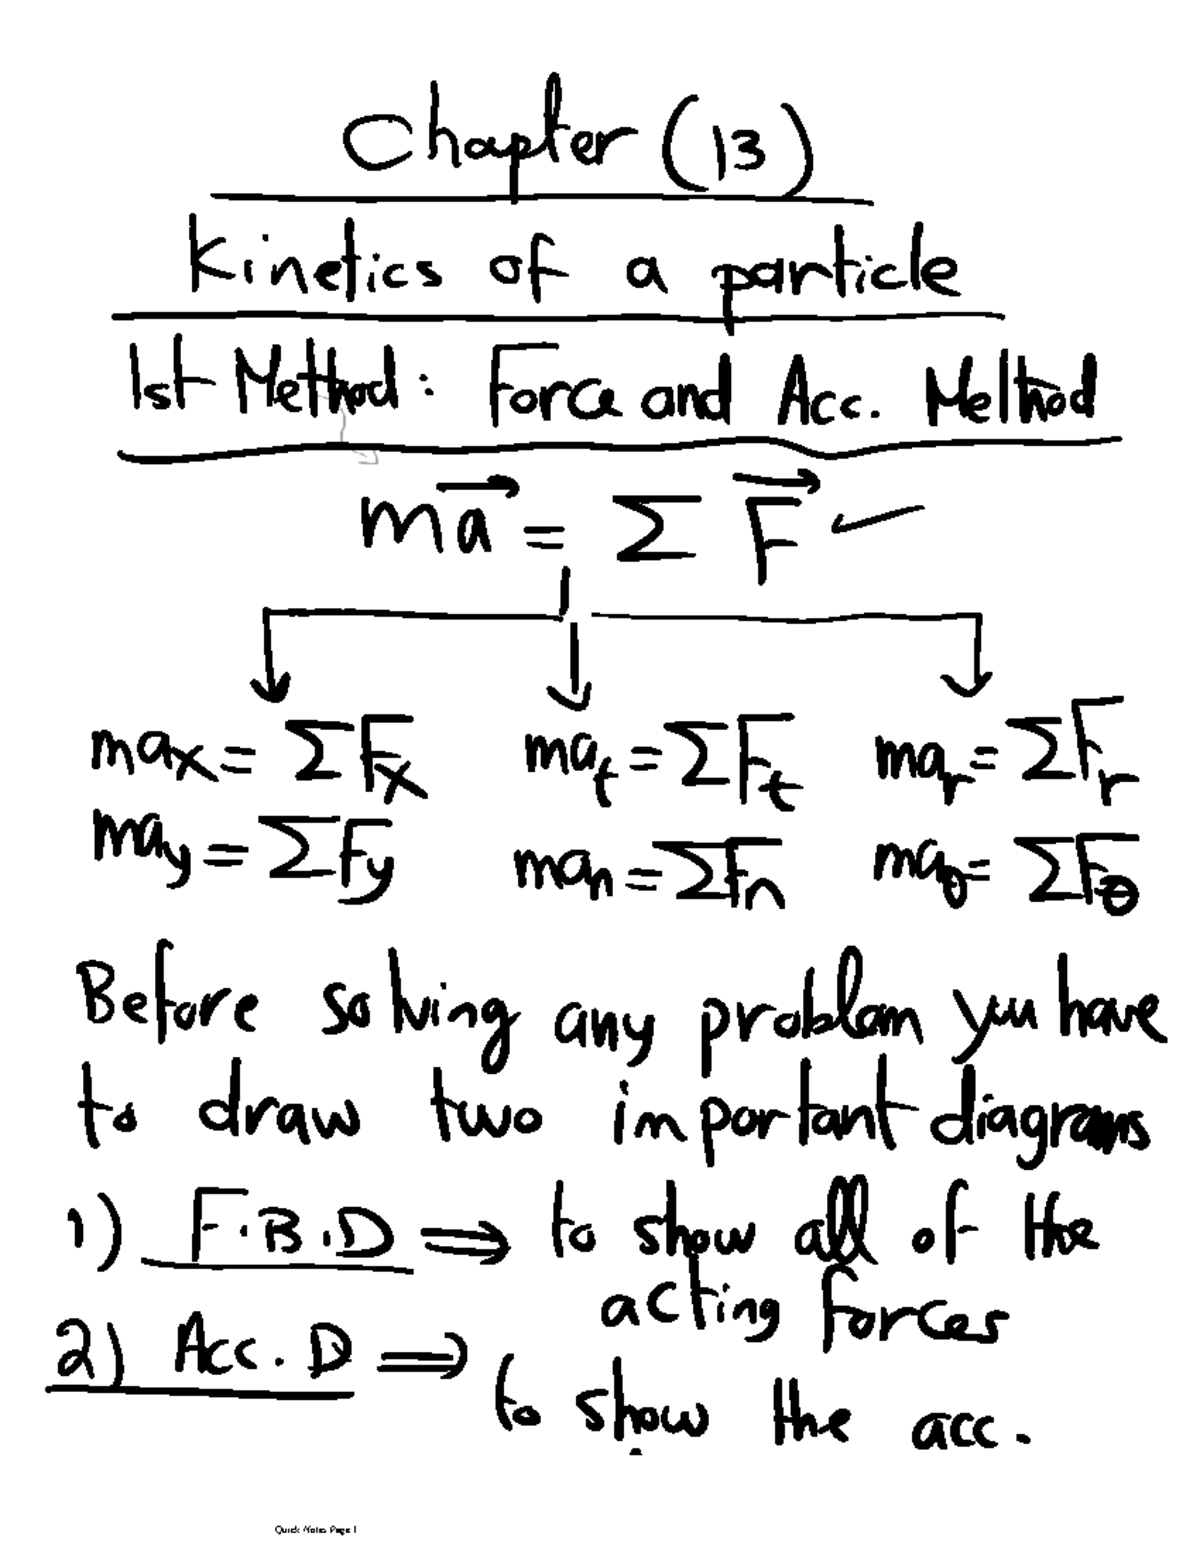 Chapter (13)
Kinetics of a particle
1st Method: Force and Acc. Method
ma⃗ = Σ F⃗ ✓
maₓ = ΣFₓ   maₜ = ΣFₜ   maᵣ = ΣFᵣ
may = ΣFy   maₙ = ΣFₙ   maθ = ΣFθ
Before solving any problem you have
to draw two important diagrams
1) F.B.D ⇒ to show all of the
acting forces
2) Acc. D ⇒ to show the acc.
Quick Notes Page 1